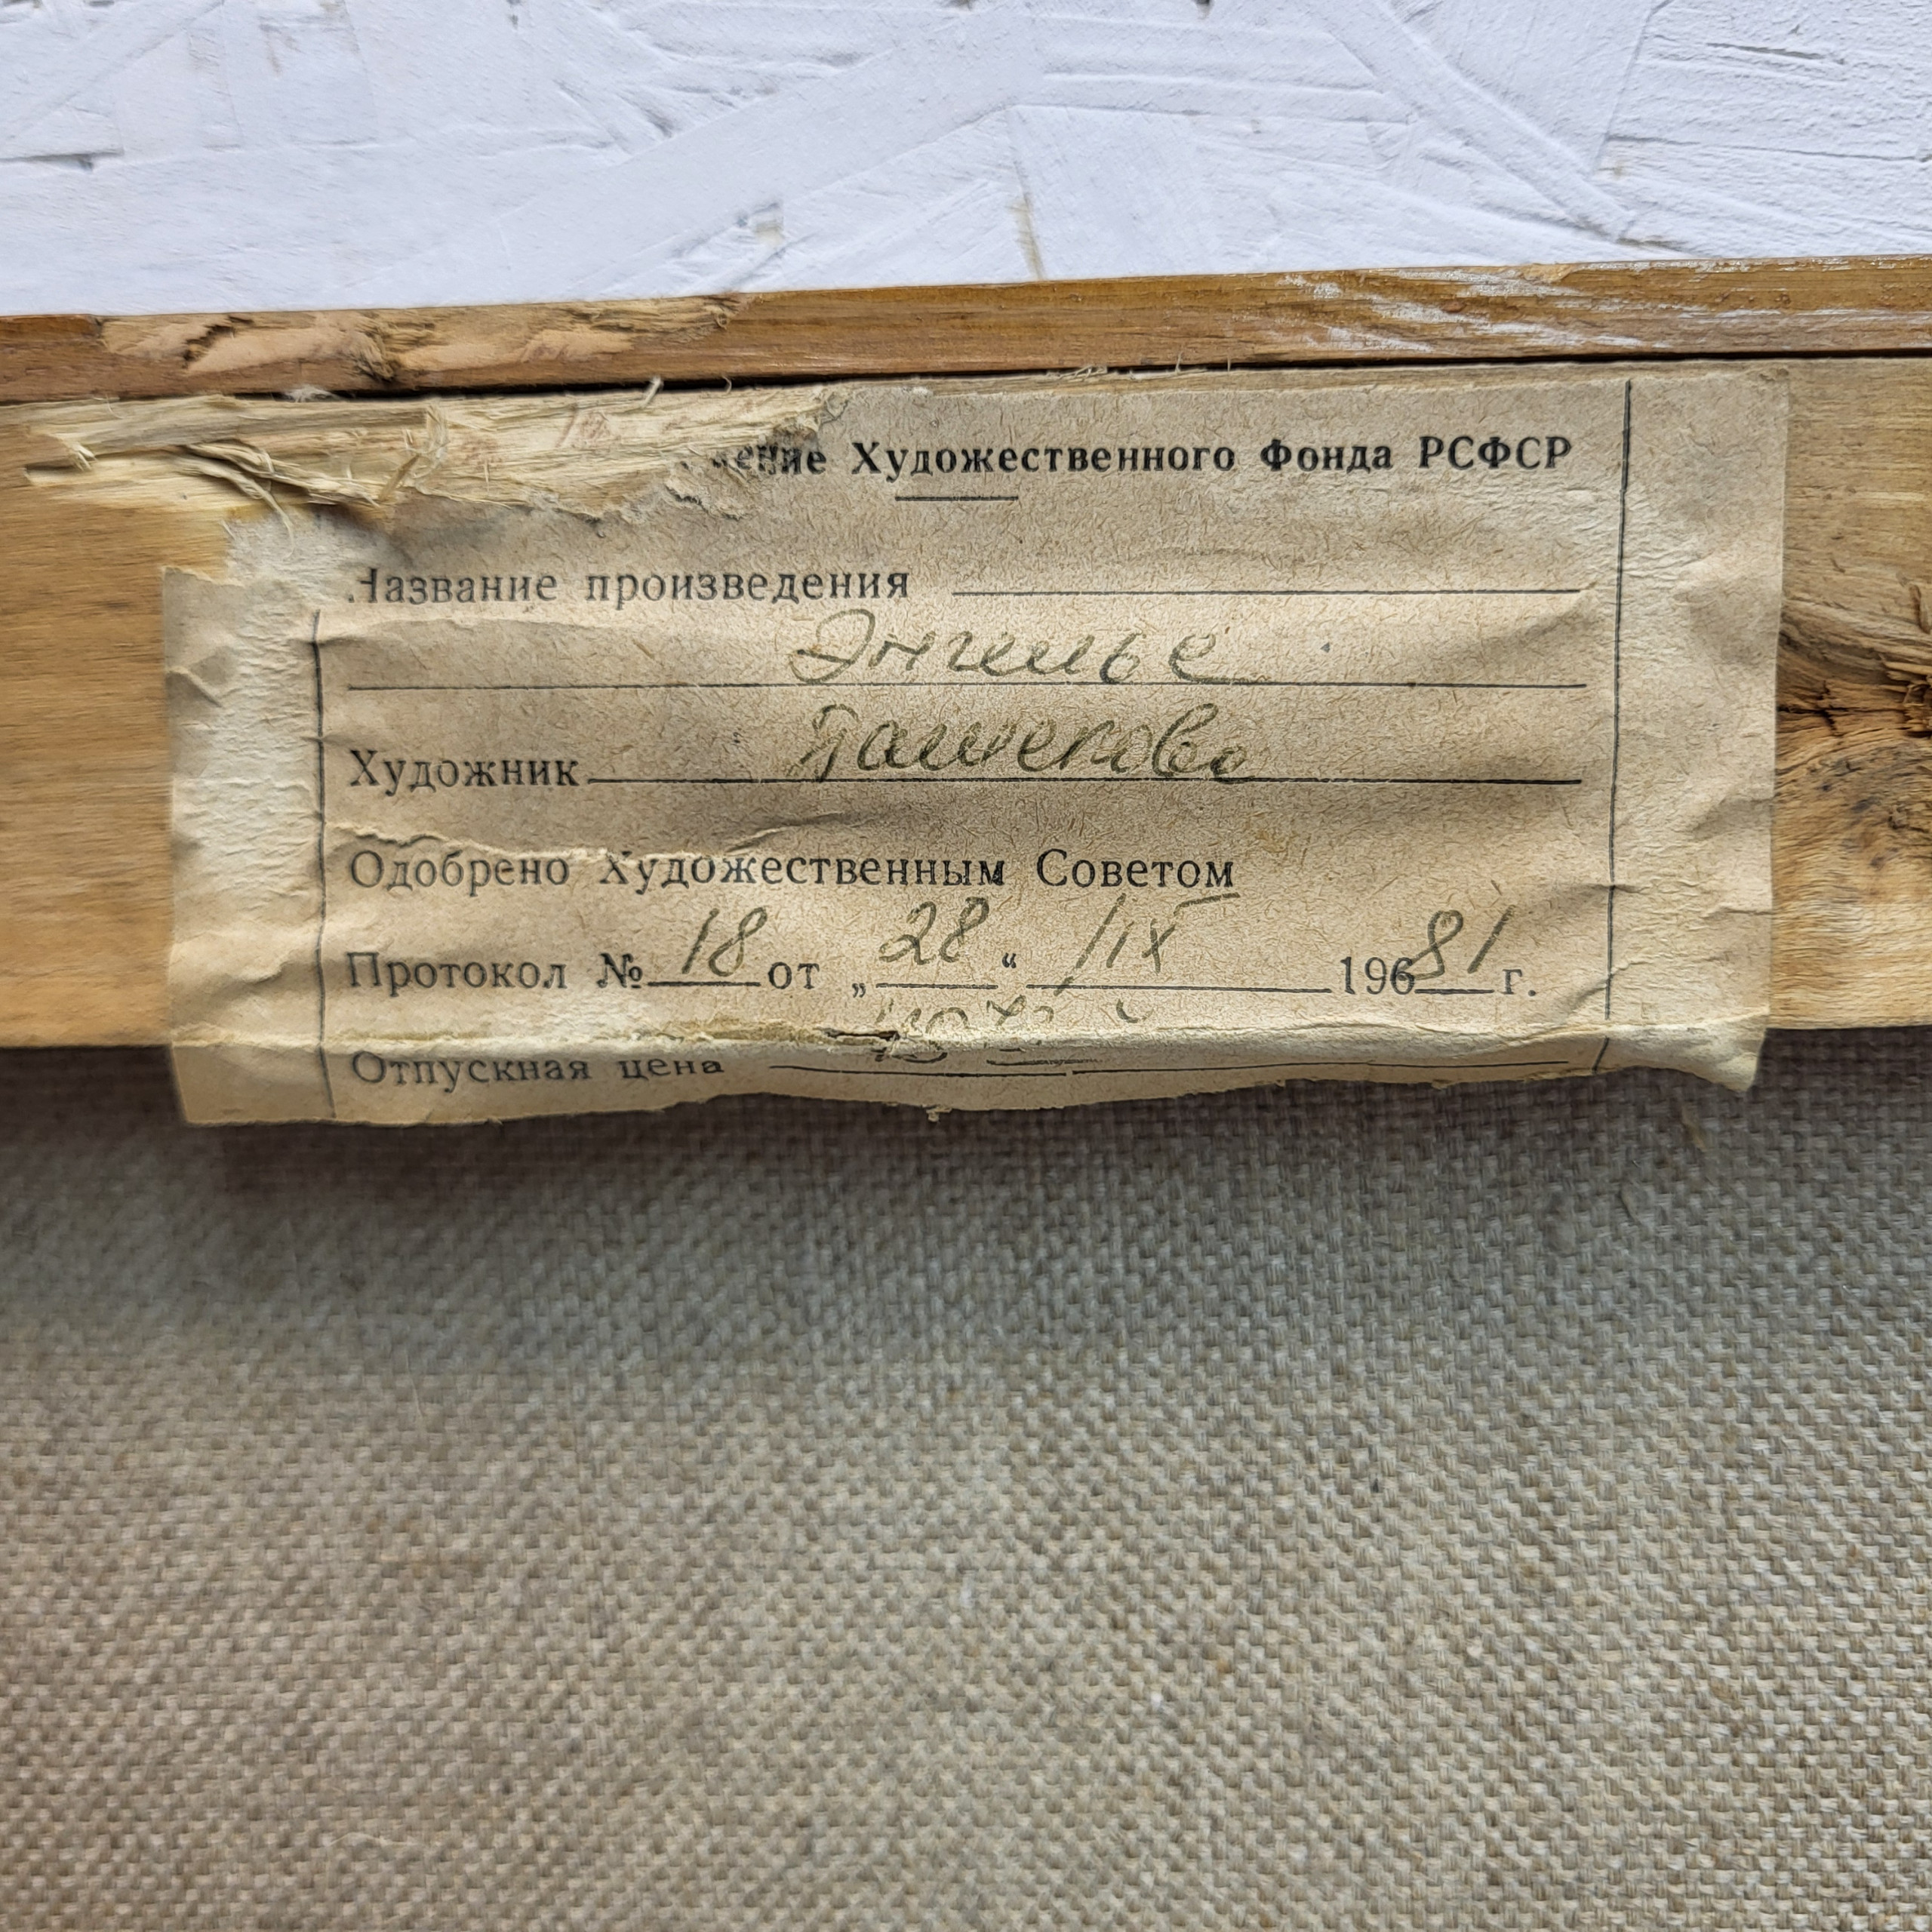 Художественного Фонда РСФСР
Название произведения
Энгельс
Художник
Одобрено Художественным Советом
Протокол № 18 от „28“ /IX 196 81 г.
Отпускная цена